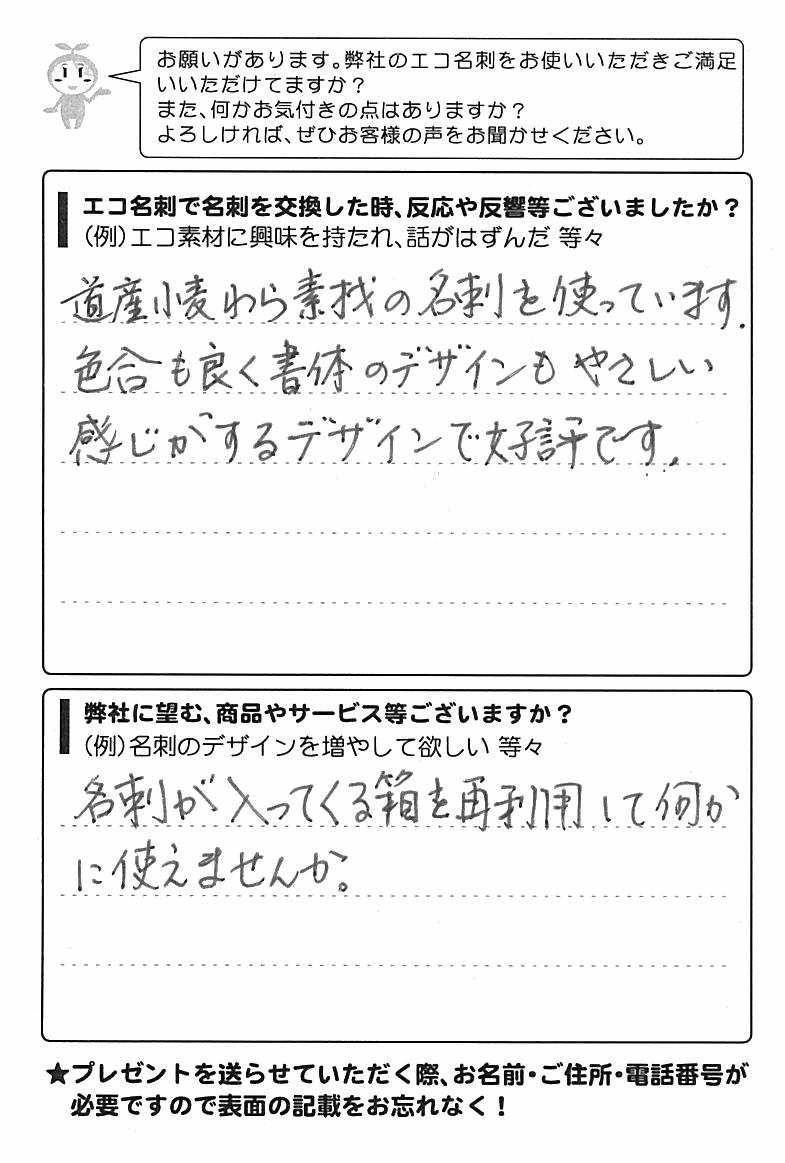 お願いがあります。弊社のエコ名刺をお使いいただきご満足
いいただけてますか？
また、何かお気付きの点はありますか？
よろしければ、ぜひお客様の声をお聞かせください。
エコ名刺で名刺を交換した時、反応や反響等ございましたか？
（例）エコ素材に興味を持たれ、話がはずんだ 等々
道産小麦わら素材の名刺を使っています.
色合も良く書体のデザインもやさしい
感じがするデザインで好評です.
弊社に望む、商品やサービス等ございますか？
（例）名刺のデザインを増やして欲しい 等々
名刺が入ってくる箱を再利用して何か
に使えませんか。
★プレゼントを送らせていただく際、お名前・ご住所・電話番号が
必要ですので表面の記載をお忘れなく！